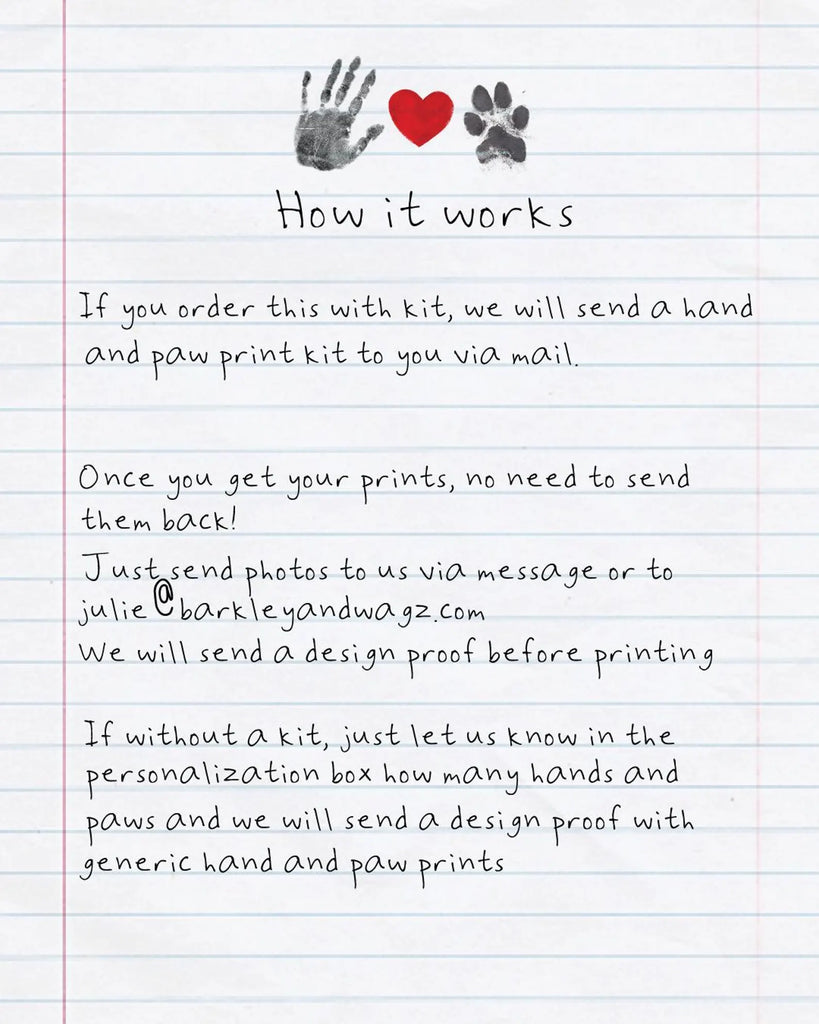 How it works
If you order this with kit, we will send a hand
and paw print kit to you via mail.
Once you get your prints, no need to send
them back!
Just send photos to us via message or to
julie@barkleyandwagz.com
We will send a design proof before printing
If without a kit, just let us know in the
personalization box how many hands and
paws and we will send a design proof with
generic hand and paw prints